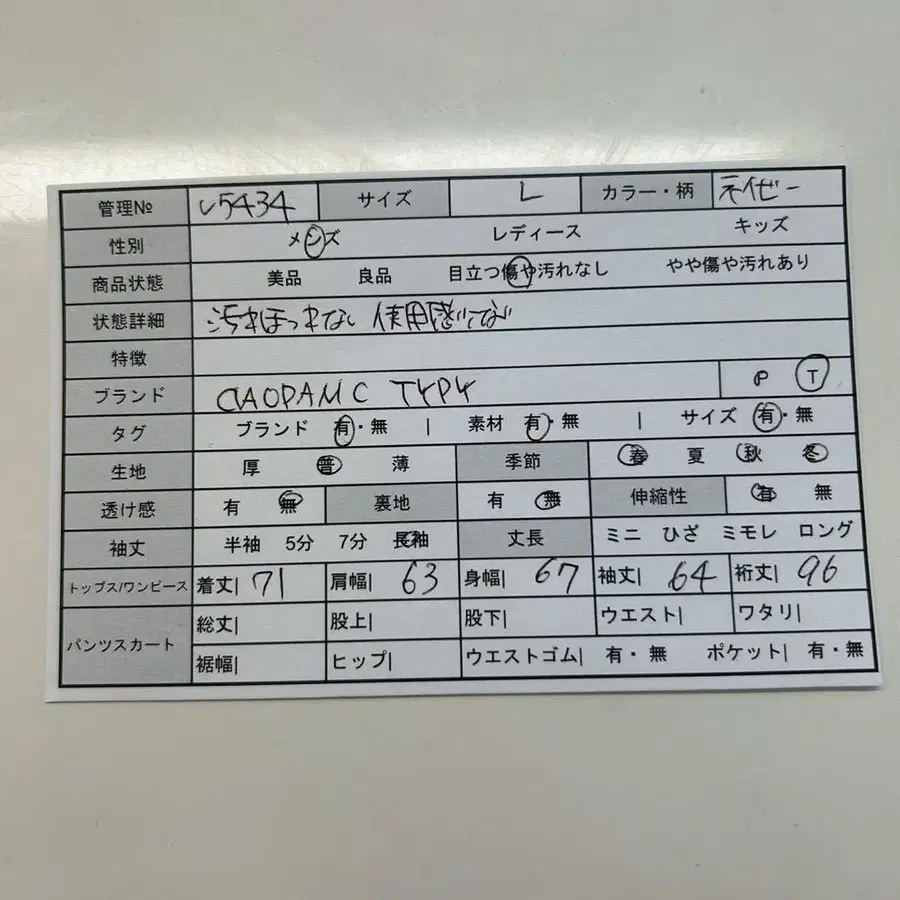 管理№ い5434 サイズ L カラー・柄 ネイビー
性別 メンズ レディース キッズ
商品状態 美品 良品 目立つ傷や汚れなし やや傷や汚れあり
状態詳細 汚れほつれなし 使用感
特徴
ブランド P T
タグ ブランド 有・無 | 素材 有・無 | サイズ 有・無
生地 厚 普 薄 季節 春 夏 秋 冬
透け感 有 無 裏地 有 無 伸縮性 有 無
袖丈 半袖 5分 7分 長袖 丈長 ミニ ひざ ミモレ ロング
トップス/ワンピース 着丈| 71 肩幅| 63 身幅| 67 袖丈| 64 裄丈| 96
パンツスカート 総丈| 股上| 股下| ウエスト| ワタリ|
裾幅| ヒップ| ウエストゴム| 有・無 ポケット| 有・無